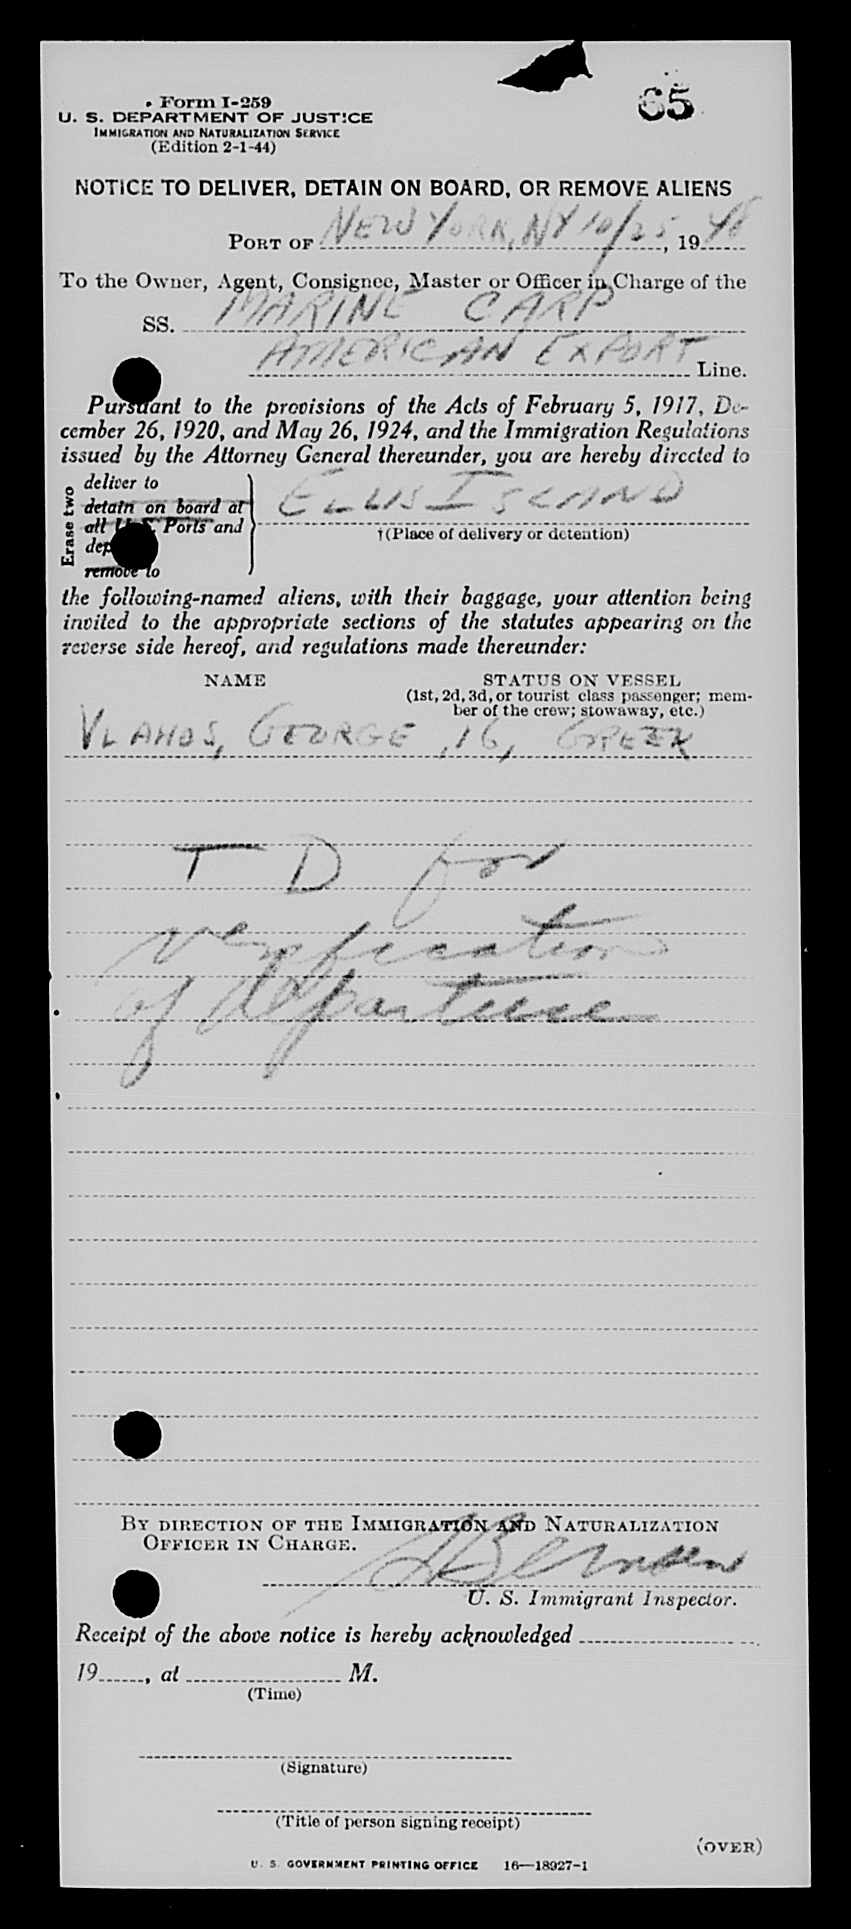 Form I-259
65
U. S. DEPARTMENT OF JUSTICE
IMMIGRATION AND NATURALIZATION SERVICE
(Edition 2-1-44)
NOTICE TO DELIVER, DETAIN ON BOARD, OR REMOVE ALIENS
PORT OF NEW YORK, NY 10/25, 1948
To the Owner, Agent, Consignee, Master or Officer in Charge of the
SS. MARINE CARP
AMERICAN EXPORT Line.
Pursuant to the provisions of the Acts of February 5, 1917, De-
cember 26, 1920, and May 26, 1924, and the Immigration Regulations
issued by the Attorney General thereunder, you are hereby directed to
Erase two
deliver to
detain on board at
all U. S. Ports and
dep
remove to
ELLIS ISLAND
†(Place of delivery or detention)
the following-named aliens, with their baggage, your attention being
invited to the appropriate sections of the statutes appearing on the
reverse side hereof, and regulations made thereunder:
NAME STATUS ON VESSEL
(1st, 2d, 3d, or tourist class passenger; mem-
ber of the crew; stowaway, etc.)
VLAHOS, GEORGE, 16, GREEK
T D for
verification
of departure
BY DIRECTION OF THE IMMIGRATION AND NATURALIZATION
OFFICER IN CHARGE.
U. S. Immigrant Inspector.
Receipt of the above notice is hereby acknowledged
19, at M.
(Time)
(Signature)
(Title of person signing receipt)
(OVER)
U. S. GOVERNMENT PRINTING OFFICE 16—18927-1